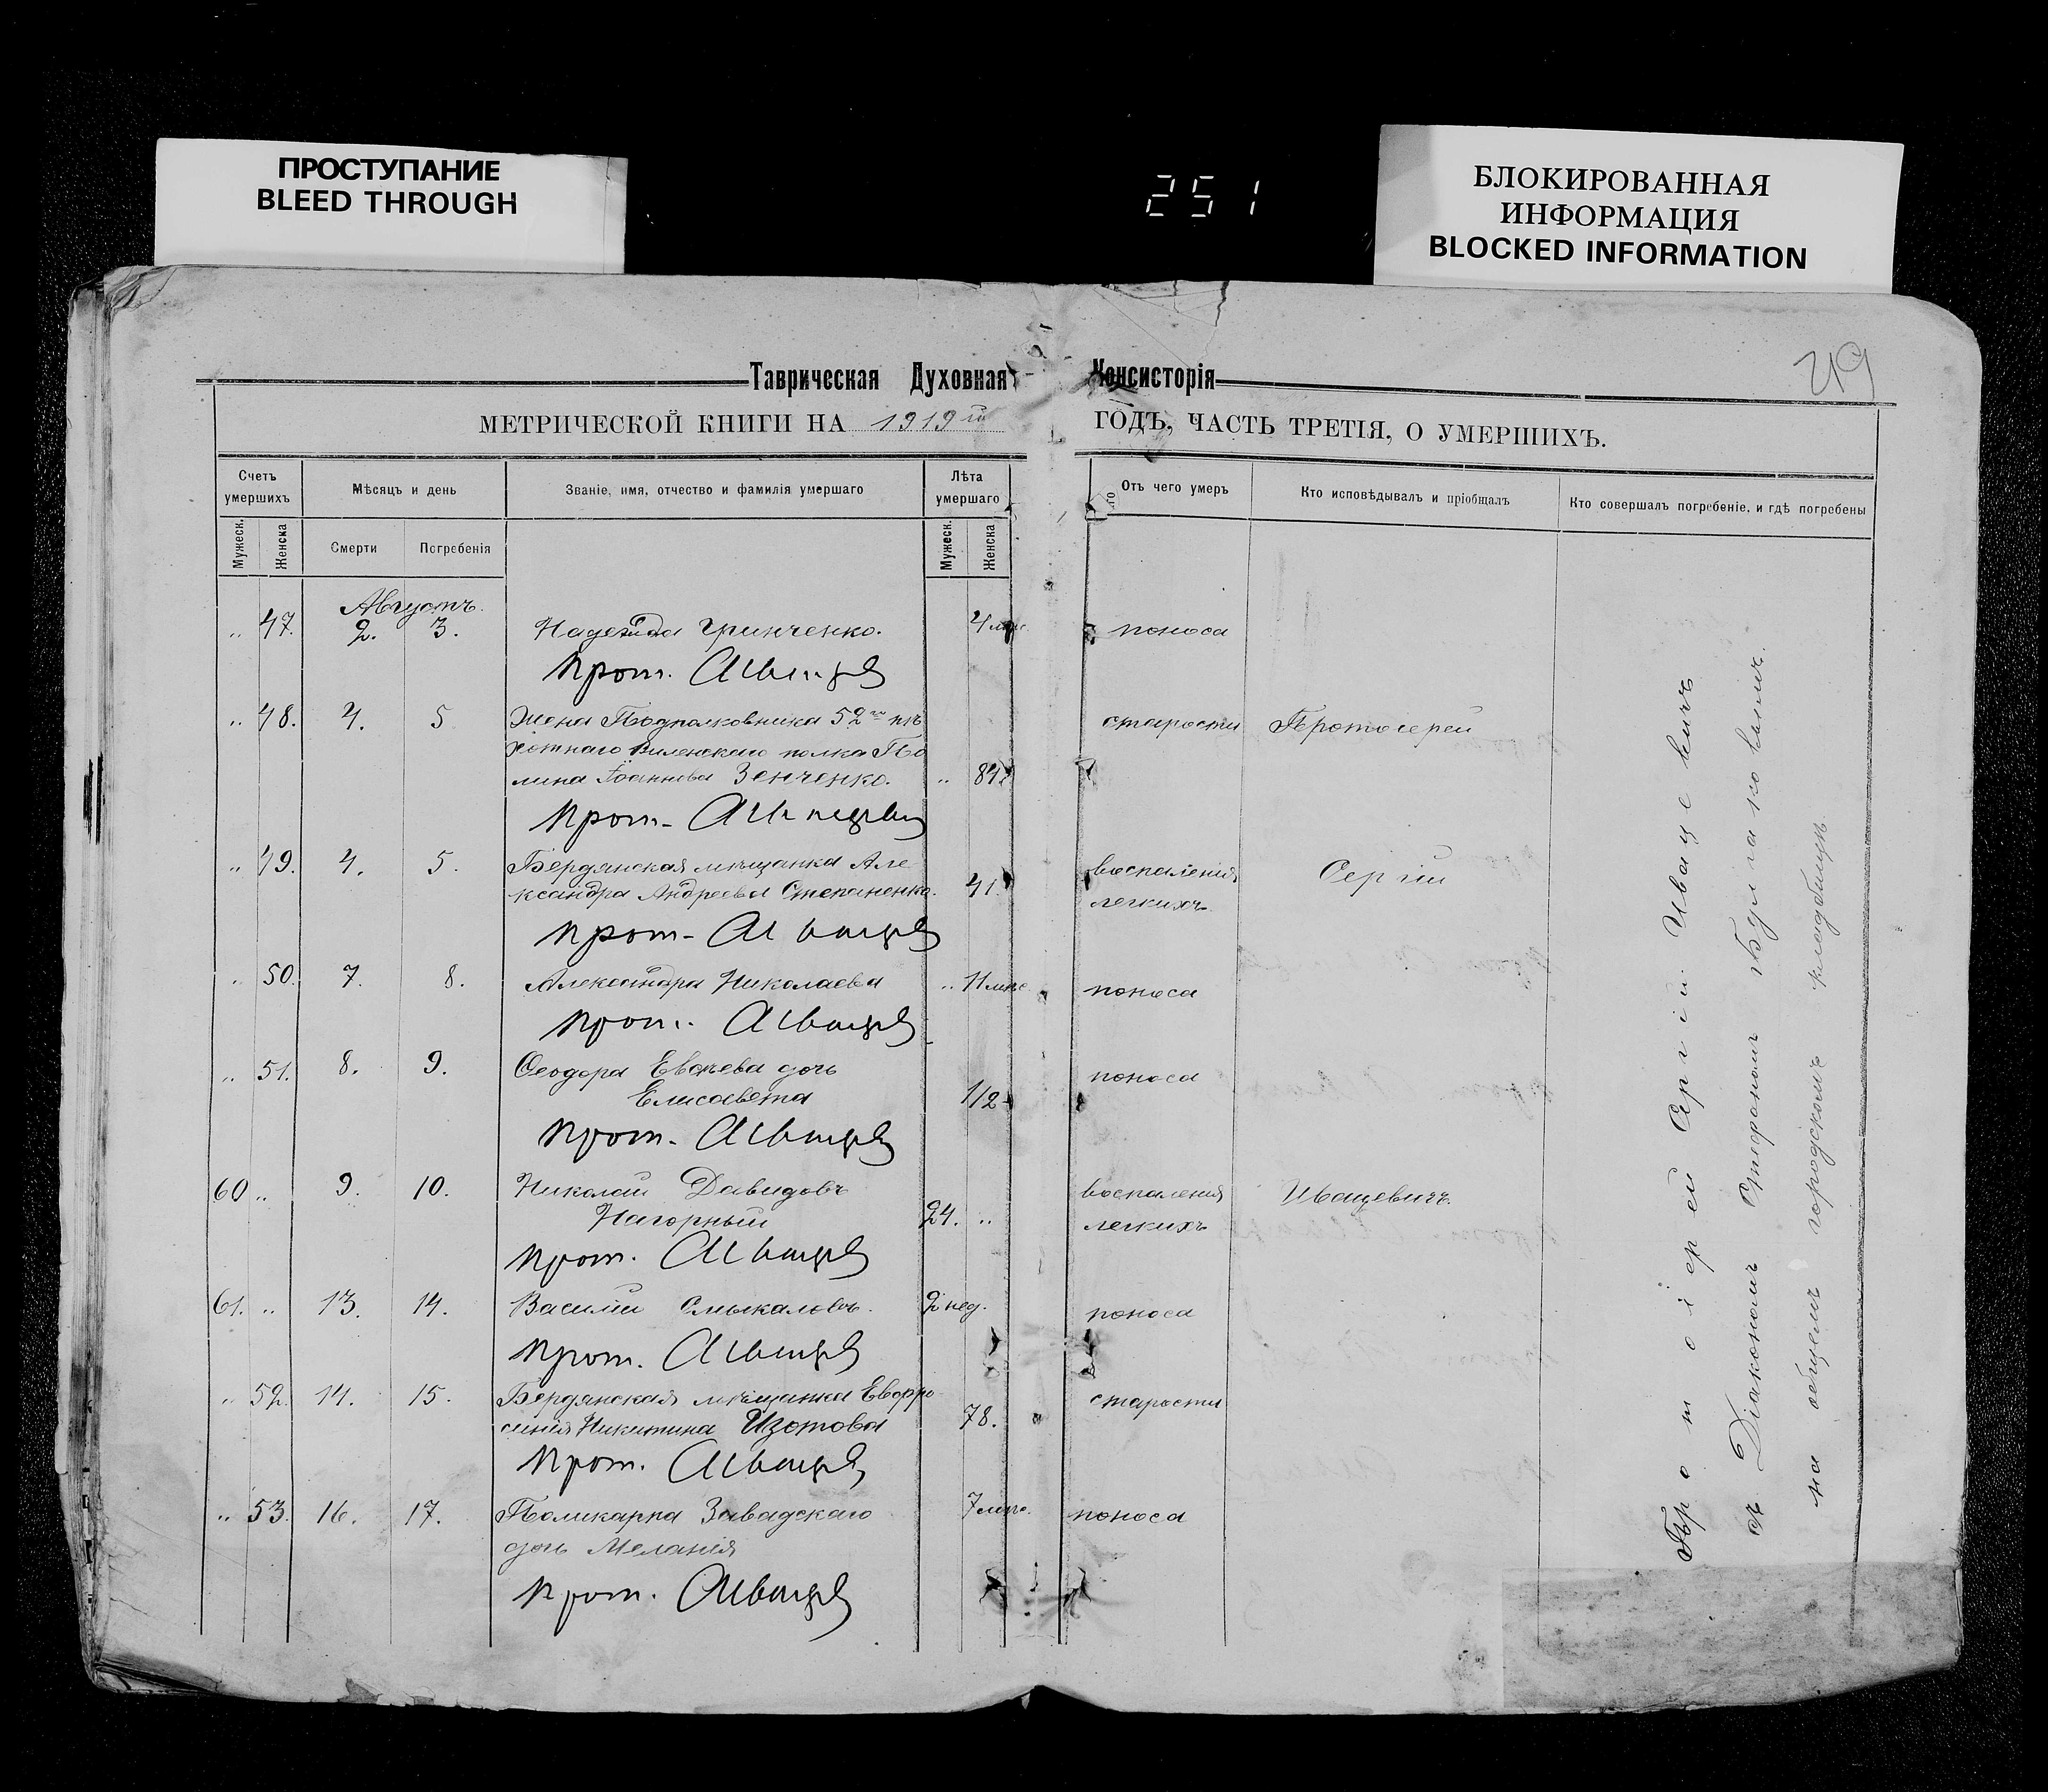 ПРОСТУПАНИЕ
BLEED THROUGH
251
БЛОКИРОВАННАЯ
ИНФОРМАЦИЯ
BLOCKED INFORMATION
49
Таврическая Духовная Консисторія
МЕТРИЧЕСКОЙ КНИГИ НА 1919й ГОДЪ, ЧАСТЬ ТРЕТІЯ, О УМЕРШИХЪ.
Счетъ умершихъ
Мѣсяцъ и день
Званіе, имя, отчество и фамилія умершаго
Лѣта умершаго
Отъ чего умеръ
Кто исповѣдывалъ и пріобщалъ
Кто совершалъ погребеніе, и гдѣ погребены
Мужеск. Женска Смерти Погребенія Мужеск. Женска
Августъ.
„ 47. 2. 3. Надежда Гринченко. 4 мѣс. поноса
Прот.
„ 48. 4. 5 Жена Подполковника 52го пѣ старости Протоіерей
хотнаго Виленскаго полка По
лина Іоаннова Зенченко. „ 84
Прот.
„ 49. 4. 5. Бердянская мѣщанка Але воспаленія Сергій
ксандра Андреева Степаненко. 41. легкихъ
Прот.
„ 50. 7. 8. Александра Николаева „ 11 мѣс. поноса
Прот.
„ 51. 8. 9. Ѳеодора дочь поноса
Елисавета 1/2
Прот.
60 „ 9. 10. Николай Давидовъ воспаленія Иващевичъ.
Нагорный 24. „ легкихъ
Прот.
61. „ 13. 14. Василій Смыкаловъ. 2 нед. поноса
Прот.
„ 52. 14. 15. Бердянская мѣщанка Евфро- старости
синія Никитина Изотова 78.
Прот.
„ 53. 16. 17. Поликарпа Завадскаго 7 мѣс. поноса
дочь Меланія
Прот.
Протоіерей Сергій Иващевичъ
съ Діакономъ Стефаномъ
на общемъ городскомъ кладбищѣ.